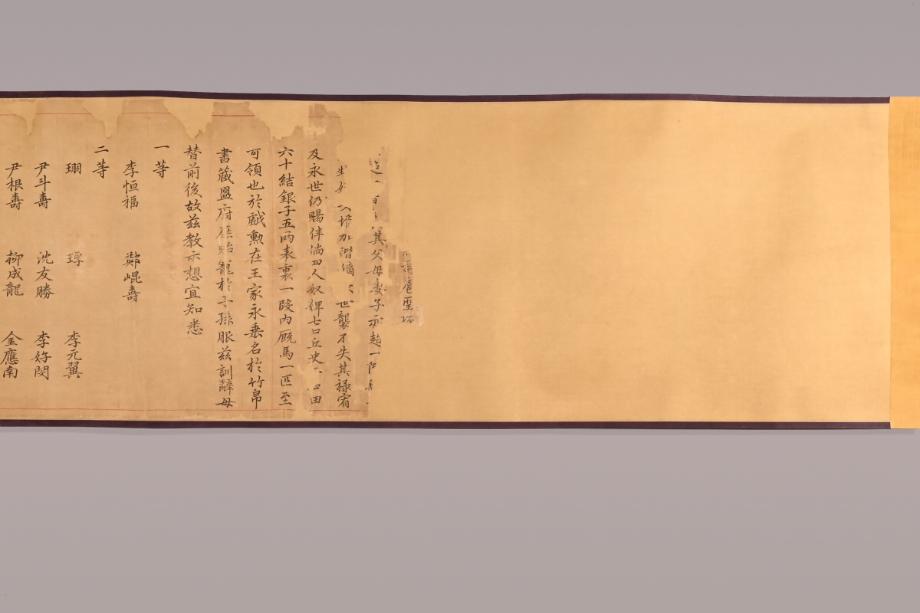 其父母妻子亦超一階
加階嫡 世襲不失其祿宥
及永世仍賜伴倘四人奴婢七口丘史 口田
六十結銀子五兩表裏一段內廐馬一匹至
可領也於戱勳在王家永垂名於竹帛
書藏盟府庶貽寵於子孫服玆訓辭毋
替前後故玆教示想宜知悉
一等
李恒福 鄭崐壽
二等
珝 琈 李元翼
尹斗壽 沈友勝 李好閔
尹根壽 柳成龍 金應南